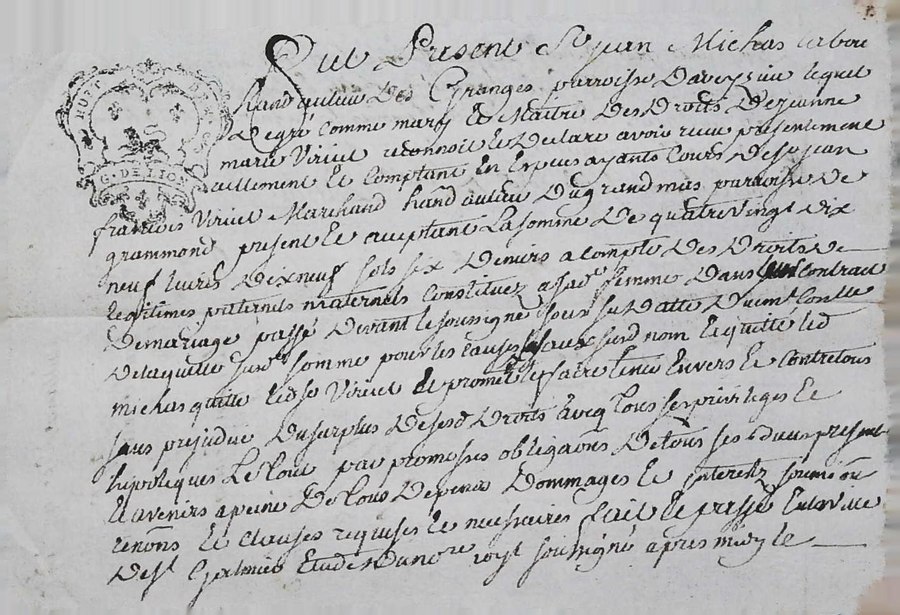 HUIT DEN
G. DE LION
Fut Present Sr Jean Michas labou
hand autem Des Granges parroisse Daveyziu lequel
De gré comme mary Et Maitre Des Droits De Jeanne
marie Viricet reconnoit Et Declare avoir receu presentement
reellement Et Comptant En Espesses ayants Cours De sr jean
francois Viricet Marchand hand autem Du grand mas parroisse De
grammond present Et aceptant La somme De quatre vingt Dix
neuf livres Dixneuf sols six Deniers a compte Des Droits De
legitimes paternels maternels Constituez a sad. femme Dans Contract
De mariage passé Devant le soussigné sous sa Datte Duëmt Conllé
De laquelle susd. somme pour les causes susd nom Et quitté led
michas quitte led sr Viricet Et promet faire tenir Envers Et Contre tous
sans prejudice Du surplus De sesd Droits avecq tous ses privileges Et
hipoteques Le tout par promesses obligaons De tous ses biens presents
Et avenirs a peine De tous Depens Dommages Et Interetz soumion
renons Et clauses requises Et necessaires fait Et passé En la ville
De st Galmier Etude Du nore royl soussigné apres midy le